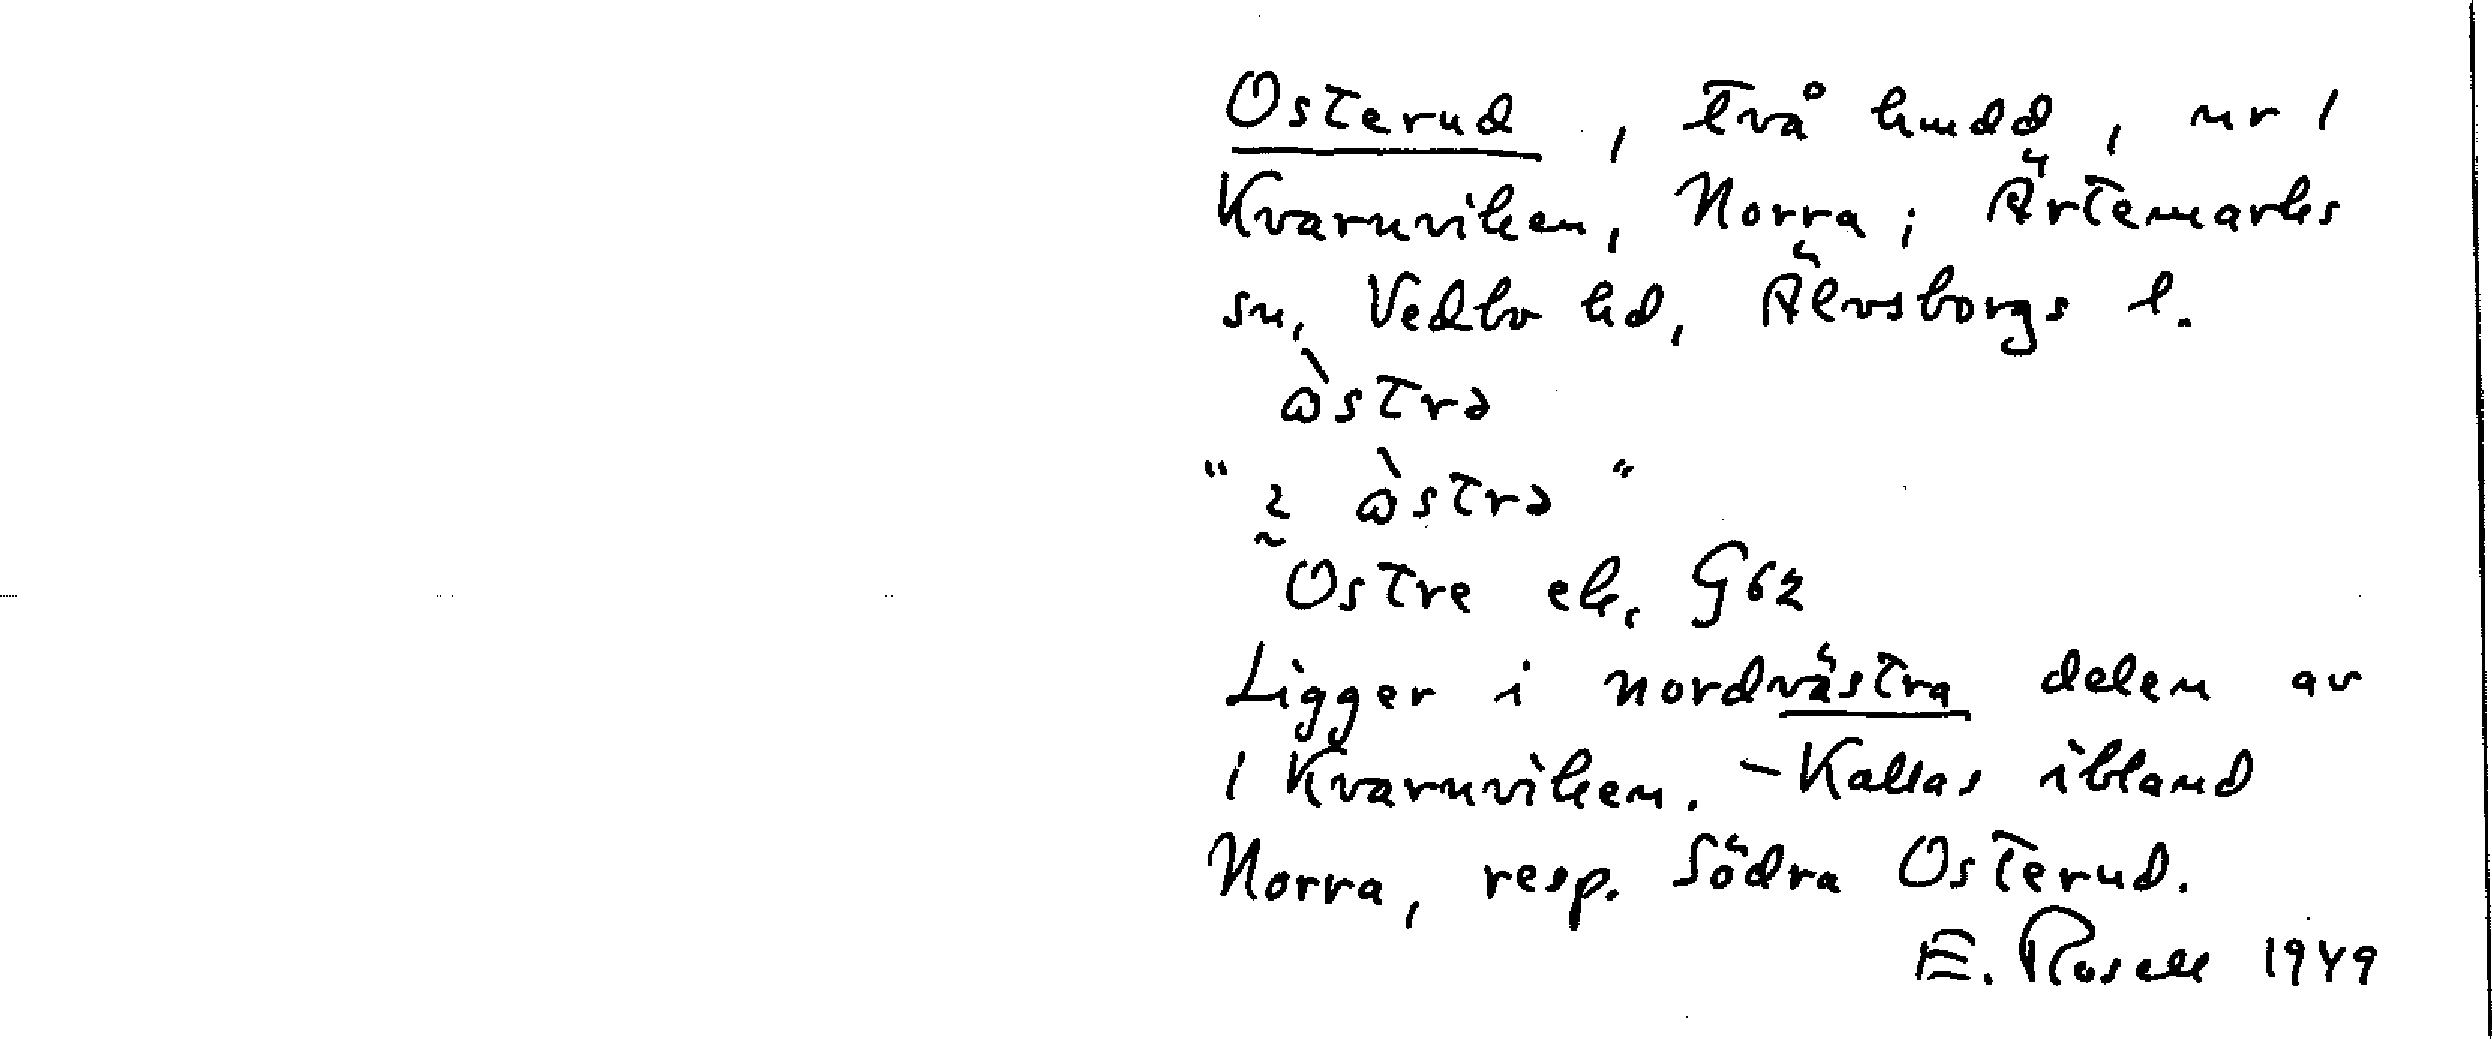 Osterud, två hmdd, nr 1
Kvarnviken, Norra; Ärtemarks
sn, Vedbo hd, Älvsborgs l.
ὼstrə
" ὼstrə "
Ostre ek. G62
Ligger i nordvästra delen av
1 Kvarnviken. – Kallas ibland
Norra, resp. Södra Osterud.
E. Rosell 1949